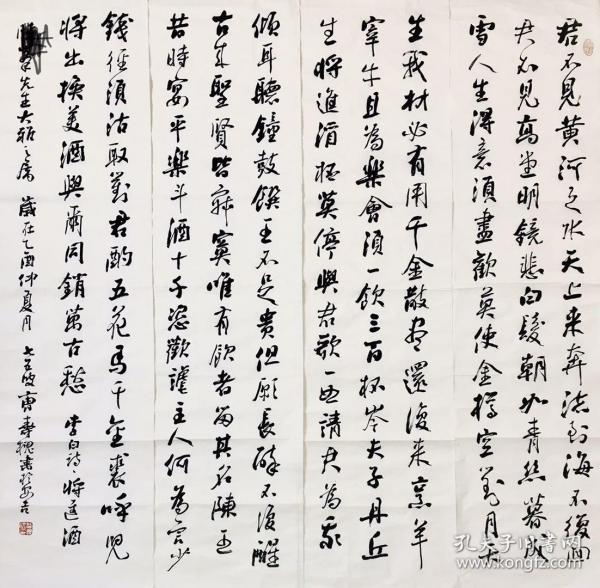 君不见黄河之水天上来奔流到海不復回
君不見高堂明镜悲白髮朝如青丝暮成
雪人生得意須盡歡莫使金樽空對月天
生我材必有用千金散尽還復来烹羊
宰牛且為樂會須一飲三百杯岑夫子丹丘
生將進酒杯莫停與君歌一曲請君為我
傾耳聽鐘鼓饌玉不足貴但願長醉不復醒
古來聖賢皆寂寞唯有飲者留其名陳王
昔時宴平樂斗酒十千恣歡謔主人何為言少
錢徑須沽取對君酌五花馬千金裘呼兒
將出換美酒與爾同銷萬古愁 李白詩將進酒
先生大雅之屬 歲在乙酉仲夏月 七五叟曹壽槐書於安吉
孔夫子旧书网